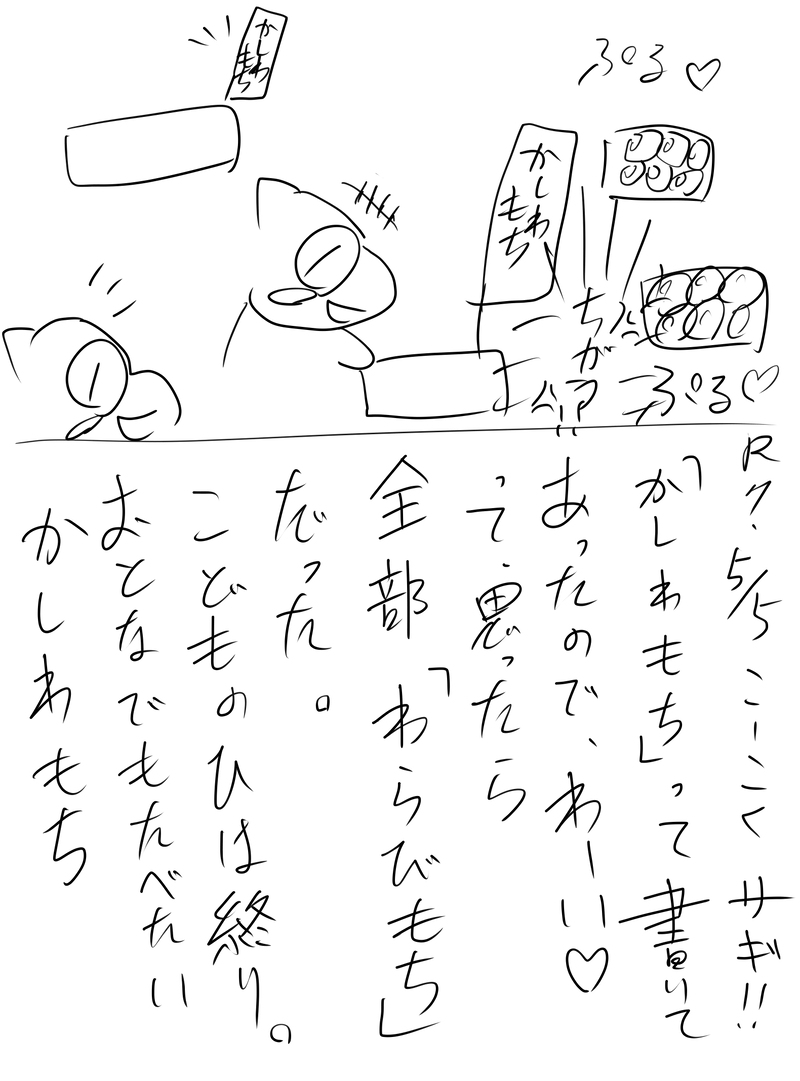 かしわもち
ぷる♡
かしわもち
ちがう!!
ぷる♡
Rク.5/5 こーこく サギ!!
「かしわもち」って書いて
あったので、わーい♡
って思ったら
全部「わらびもち」
だった。
こどものひは終り。
おとなでもたべたい
かしわもち